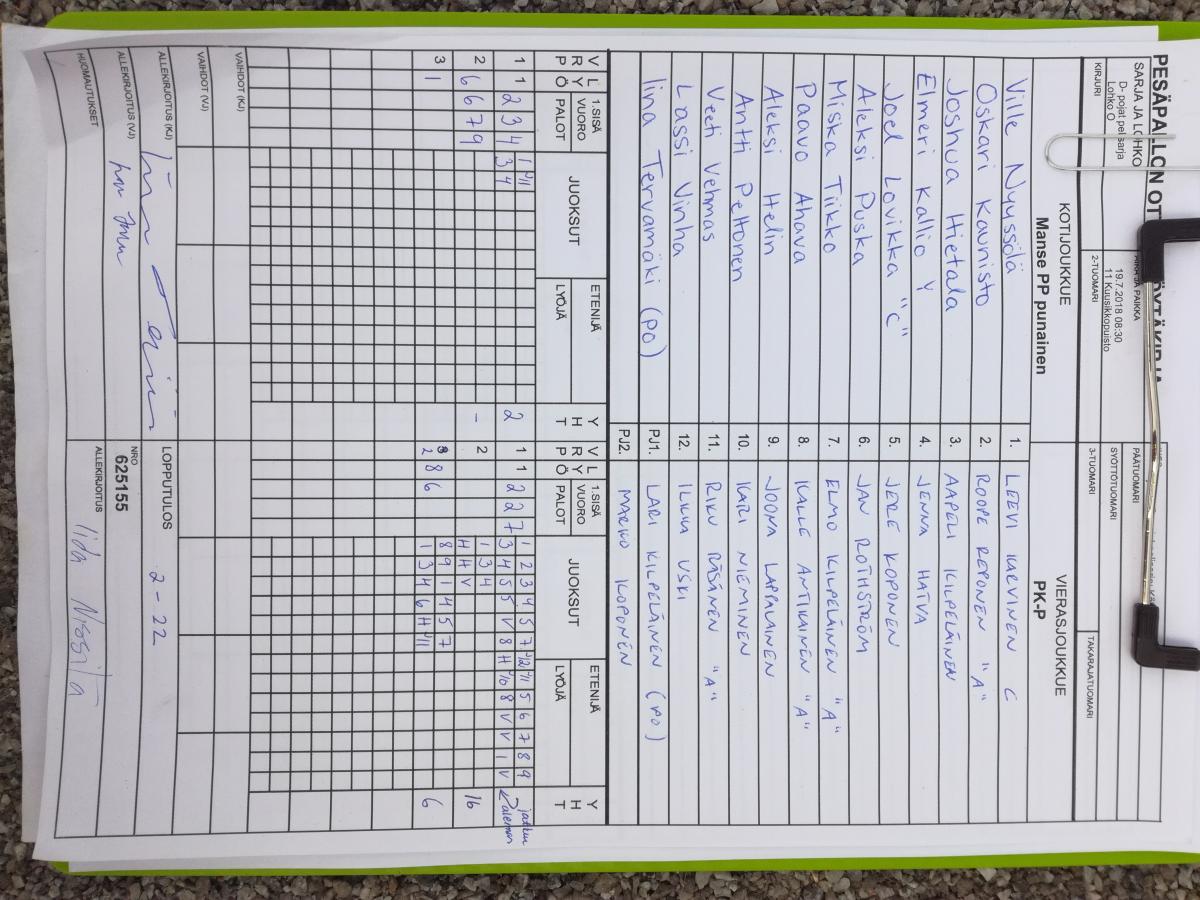 PESÄPALLON OT
SARJA JA LOHKO
D- pojat pelisarja
Lohko O
19.7.2018 08:30
11 Kuusikkopuisto
PÄÄTUOMARI
SYÖTTÖTUOMARI
KIRJURI
2-TUOMARI
3-TUOMARI
TAKARAJATUOMARI
KOTIJOUKKUE
Manse PP punainen
VIERASJOUKKUE
PK-P
Ville Nyyssölä 1. LEEVI KARVINEN C
Oskari Kaunisto 2. ROOPE REPONEN "A"
Joshua Hietala 3. AAPELI KILPELÄINEN
Elmeri Kallio Y 4. JENNA HATVA
Joel Lovikka "C" 5. JERE KOPONEN
Aleksi Puska 6. JAN ROTHSTRÖM
Miska Tiikko 7. ELMO KILPELÄINEN "A"
Paavo Ahava 8. KALLE ANTIKAINEN "A"
Aleksi Helin 9. JOONA LAPPALAINEN
Antti Peltonen 10. KARI NIEMINEN
Veeti Vehmas 11. RIKU RÄSÄNEN "A"
Lassi Vinha 12. ILKKA USKI
Iina Tervamäki (PO) PJ1. LARI KILPELÄINEN (PO)
PJ2. MARKO KOPONEN
V R P L Y Ö 1.SISÄ VUORO PALOT JUOKSUT ETENIJÄ LYÖJÄ Y H T V R P L Y Ö 1.SISÄ VUORO PALOT JUOKSUT ETENIJÄ LYÖJÄ Y H T
1 1 2 3 4 1 "11 2 1 1 2 2 7 1 2 3 4 5 7 "12 "11 5 6 7 8 9 jatkuu
3 4 3 4 5 5 V 8 H "10 8 V V 1 V
2 6 6 7 9 - 2 1 3 4 16
H H V
3 1 2 8 6 8 9 1 4 5 7 6
1 3 4 6 H "11
VAIHDOT (KJ)
VAIHDOT (VJ)
ALLEKIRJOITUS (KJ)
LOPPUTULOS 2-22
ALLEKIRJOITUS (VJ)
NRO
625155
HUOMAUTUKSET
ALLEKIRJOITUS Iida Nissilä